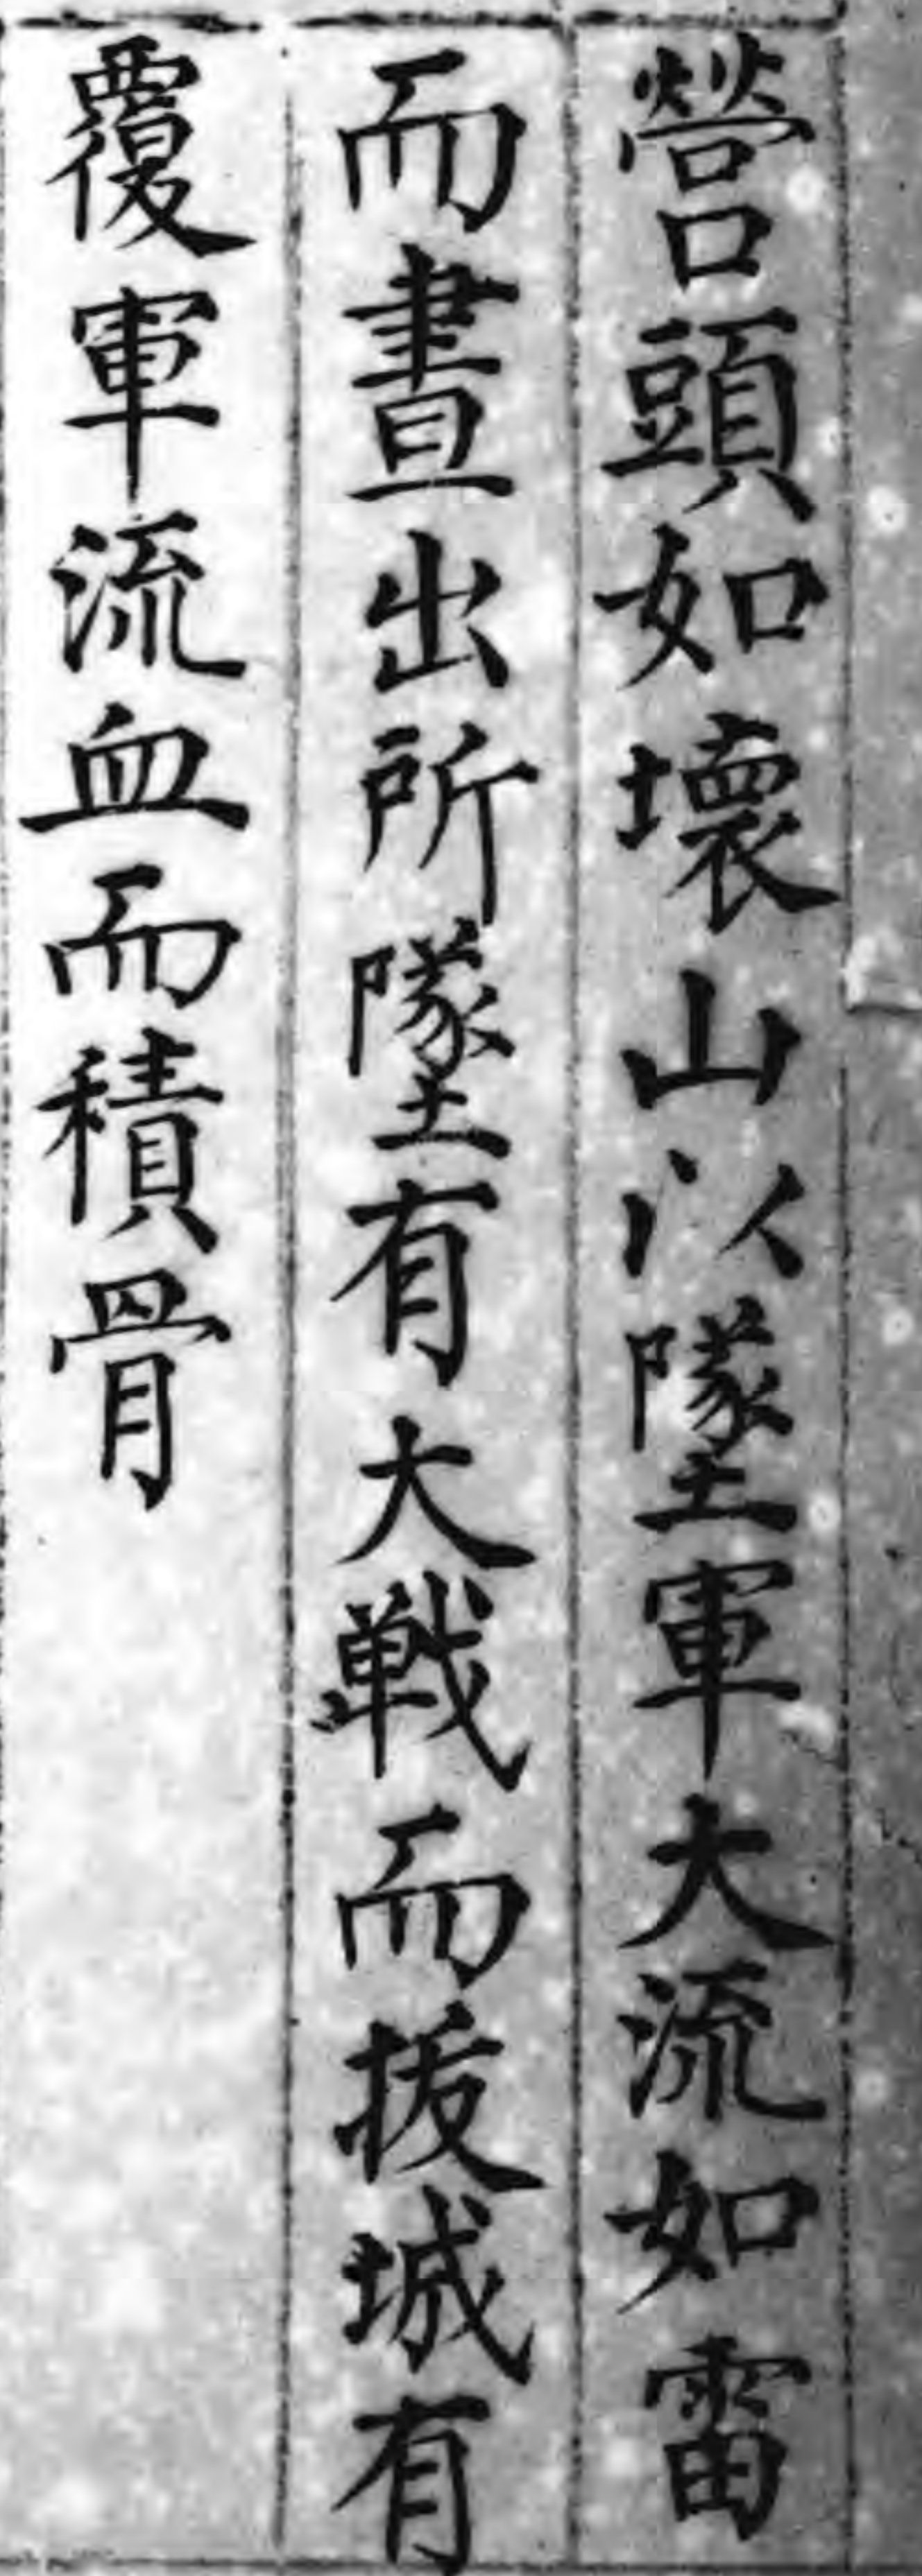 營頭如壞山以墜軍大流如雷
而晝出所墜有大戰而拔城有
覆軍流血而積骨